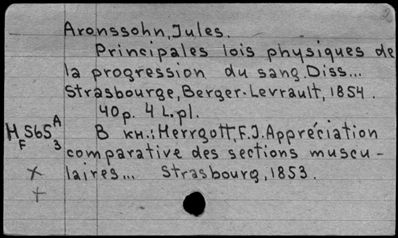 Aronssohn, Jules.
Principales lois physiques de
la progression du sang. Diss...
Strasbourge, Berger-Levrault, 1854.
40p. 4 L.pl.
H 565 A
F 3
В кн.: Herrgott, F.J. Appréciation
comparative des sections muscu-
laires... Strasbourg, 1853.